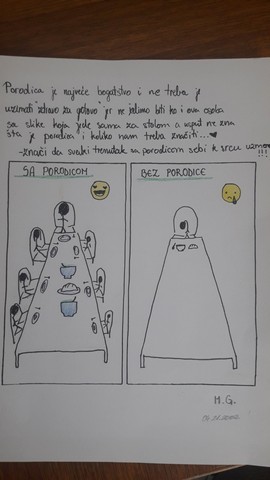 Porodica je najveće bogatstvo i ne treba je
uzimati "zdravo za gotovo" jer ne želimo biti ko i ova osoba
sa slike koja jede sama za stolom a usput ne zna
šta je porodica i koliko nam treba značiti...
-znači da svaki trenutak sa porodicom sebi k srcu uzmemo
!!!
SA PORODICOM
BEZ PORODICE
M.G.